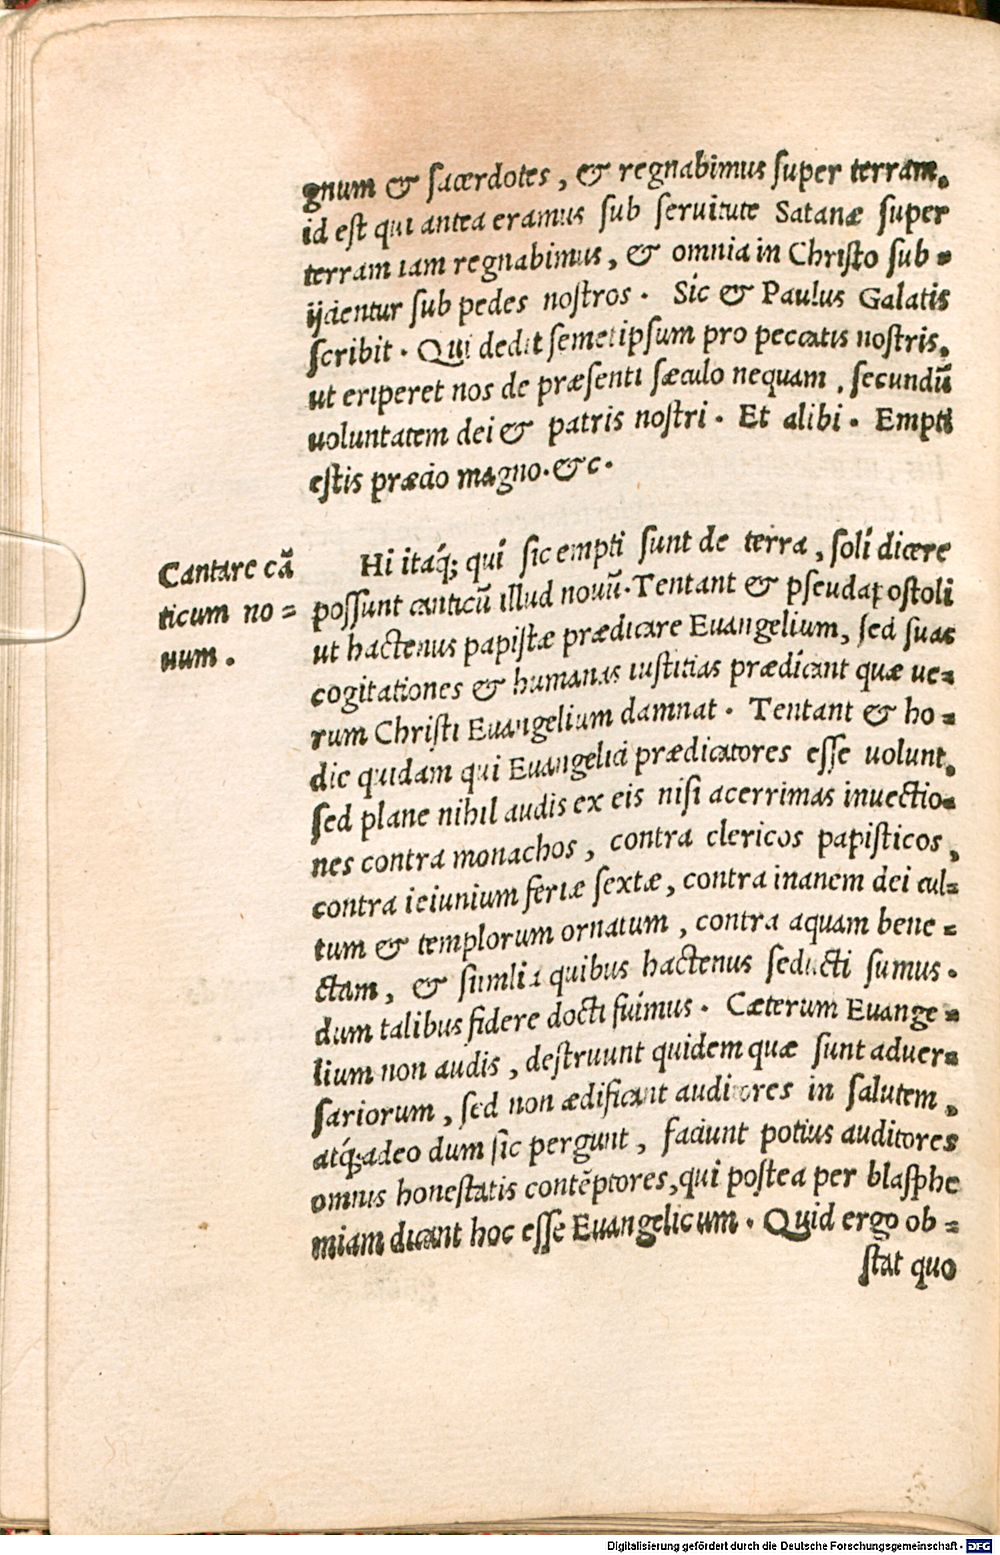 gnum & sacerdotes, & regnabimus super terram.
id est qui antea eramus sub seruitute Satanæ super
terram iam regnabimus, & omnia in Christo sub=
ijcientur sub pedes nostros. Sic & Paulus Galatis
scribit. Qui dedit semetipsum pro peccatis nostris,
ut eriperet nos de præsenti sæculo nequam, secundũ
uoluntatem dei & patris nostri. Et alibi. Empti
estis præcio magno. &c.
Cantare cã
ticum no=
uum.
Hi itaq́; qui sic empti sunt de terra, soli dicere
possunt canticũ illud nouũ. Tentant & pseudapostoli
ut hactenus papistæ prædicare Euangelium, sed suas
cogitationes & humanas iustitias prædicant quæ ue=
rum Christi Euangelium damnat. Tentant & ho=
die quidam qui Euangelici prædicatores esse uolunt,
sed plane nihil audis ex eis nisi acerrimas inuectio=
nes contra monachos, contra clericos papisticos,
contra ieiunium feriæ sextæ, contra inanem dei cul=
tum & templorum ornatum, contra aquam bene=
ctam, & similia quibus hactenus seducti sumus.
dum talibus fidere docti fuimus. Cæterum Euange=
lium non audis, destruunt quidem quæ sunt aduer=
sariorum, sed non ædificant auditores in salutem,
atq́; adeo dum sic pergunt, faciunt potius auditores
omnis honestatis contẽptores, qui postea per blasphe
miam dicant hoc esse Euangelicum. Quid ergo ob=
stat quo
Digitalisierung gefördert durch die Deutsche Forschungsgemeinschaft - DFG